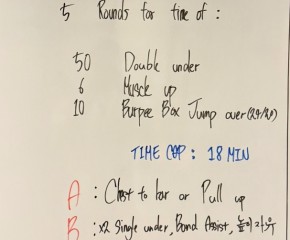 5 Rounds for time of :
50 Double under
6 Muscle up
10 Burpee Box Jump over (24/20)
TIME CAP : 18 MIN
A : Chest to bar or Pull up
B : x2 Single under, Band Assist, 높이 자유